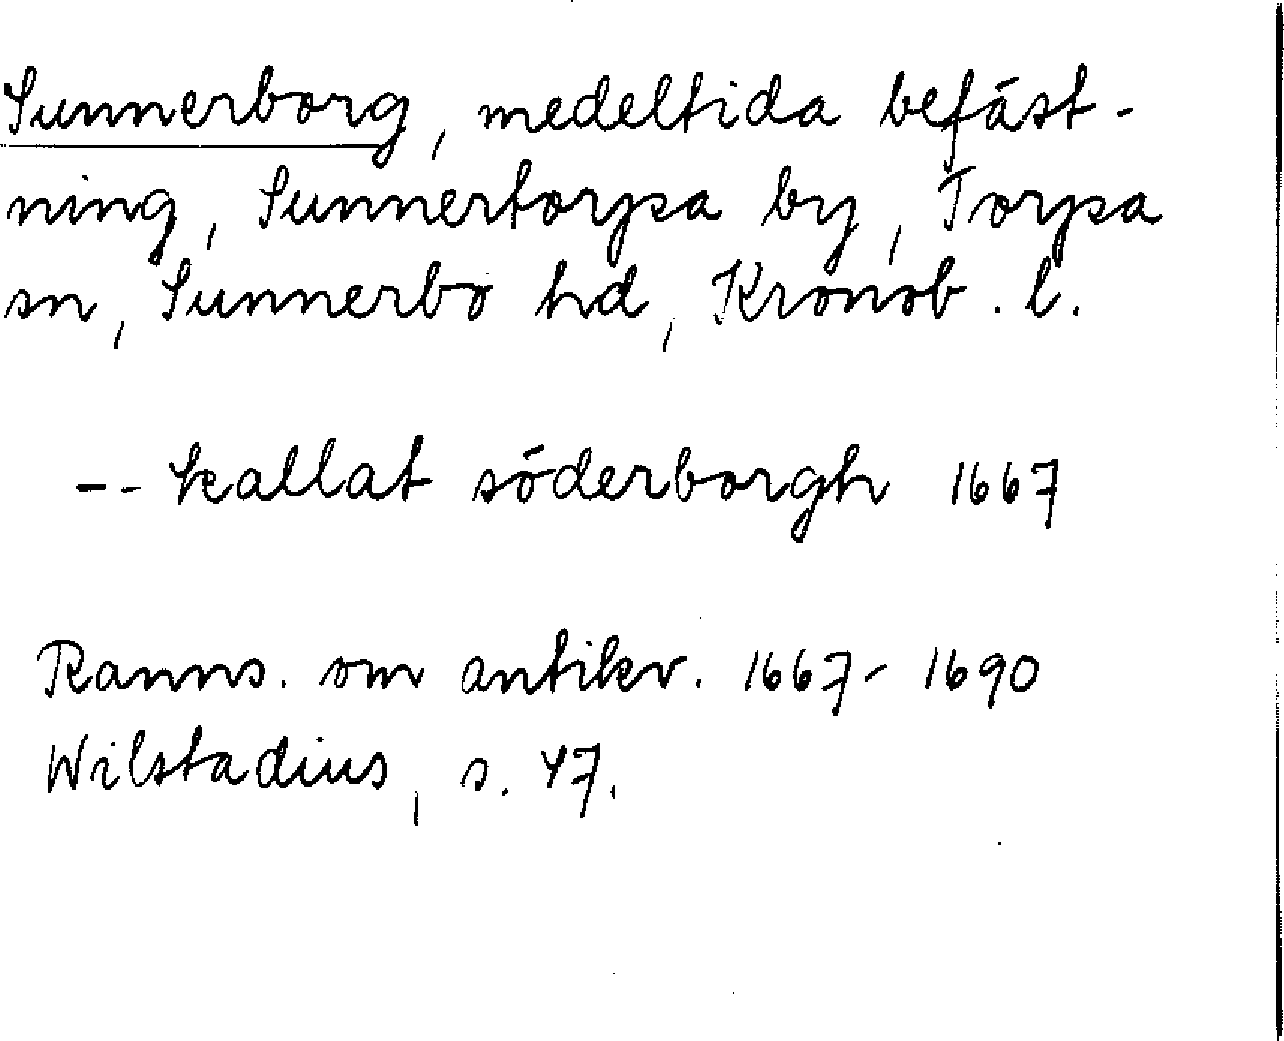 Sunnerborg, medeltida befäst-
ning, Sunnertorpsa by, Torpsa
sn, Sunnerbo hd, Kronob. l.
-- kallat söderborgh 1667
Ranns. om antikv. 1667- 1690
Wilstadius, s. 47.